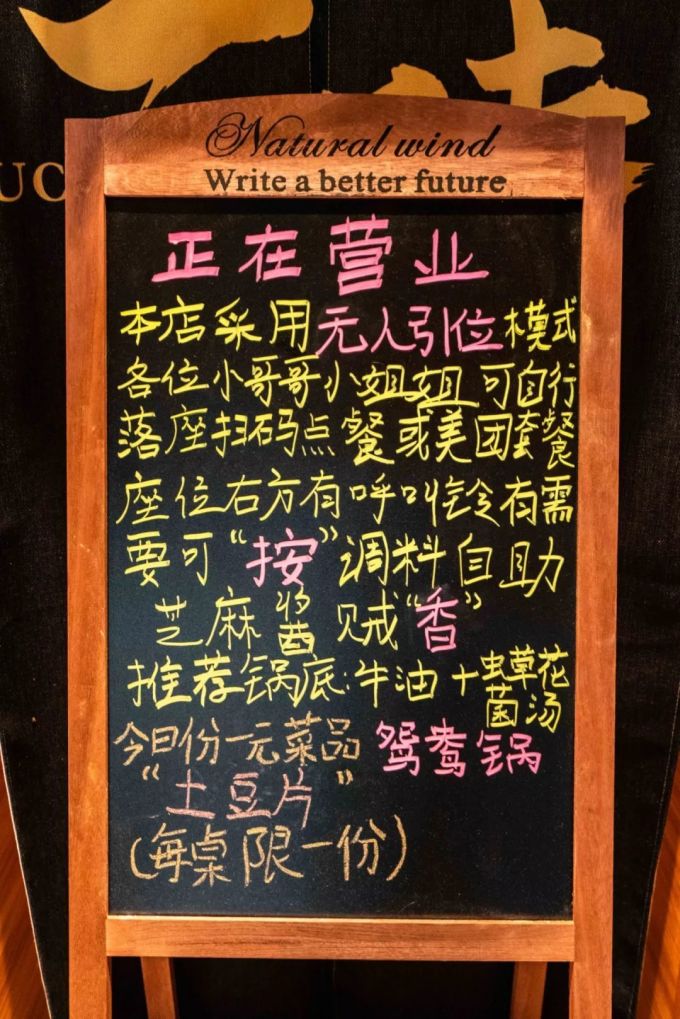 Natural wind
Write a better future
正在营业
本店采用无人引位模式
各位小哥哥小姐姐可自行
落座扫码点餐或美团套餐
座位右方有呼叫铃有需
要可“按”调料自助
芝麻酱贼“香”
推荐锅底:牛油+虫草花菌汤
今日份一元菜品 鸳鸯锅
“土豆片”
(每桌限一份)